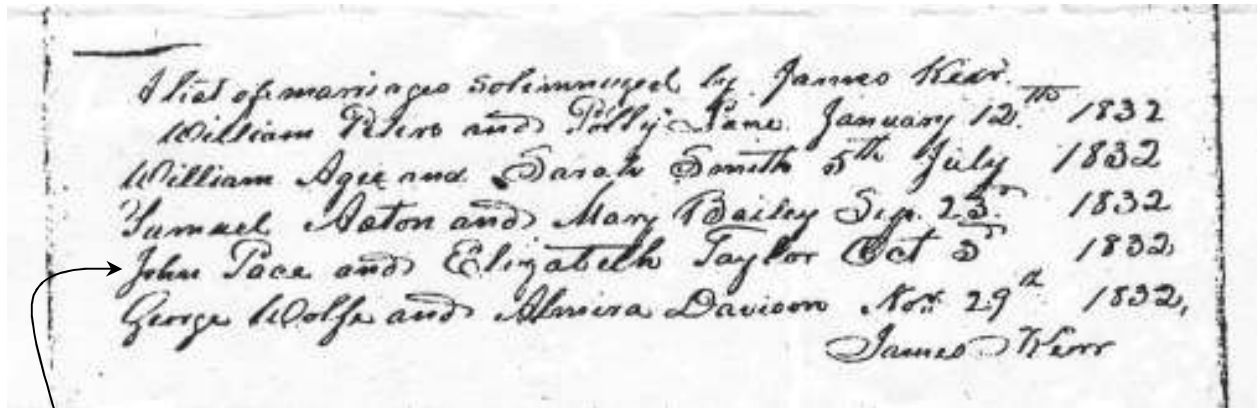 A list of marriages solimnized by James Kerr.
William Peters and Polly Pane January 12th 1832
William Agee and Sarah Smith 5th July 1832
Samuel Aston and Mary Bailey Sep. 23d 1832
John Pace and Elizabeth Taylor Oct 3d 1832
George Wolfe and Almira Davison Nov. 29th 1832,
James Kerr